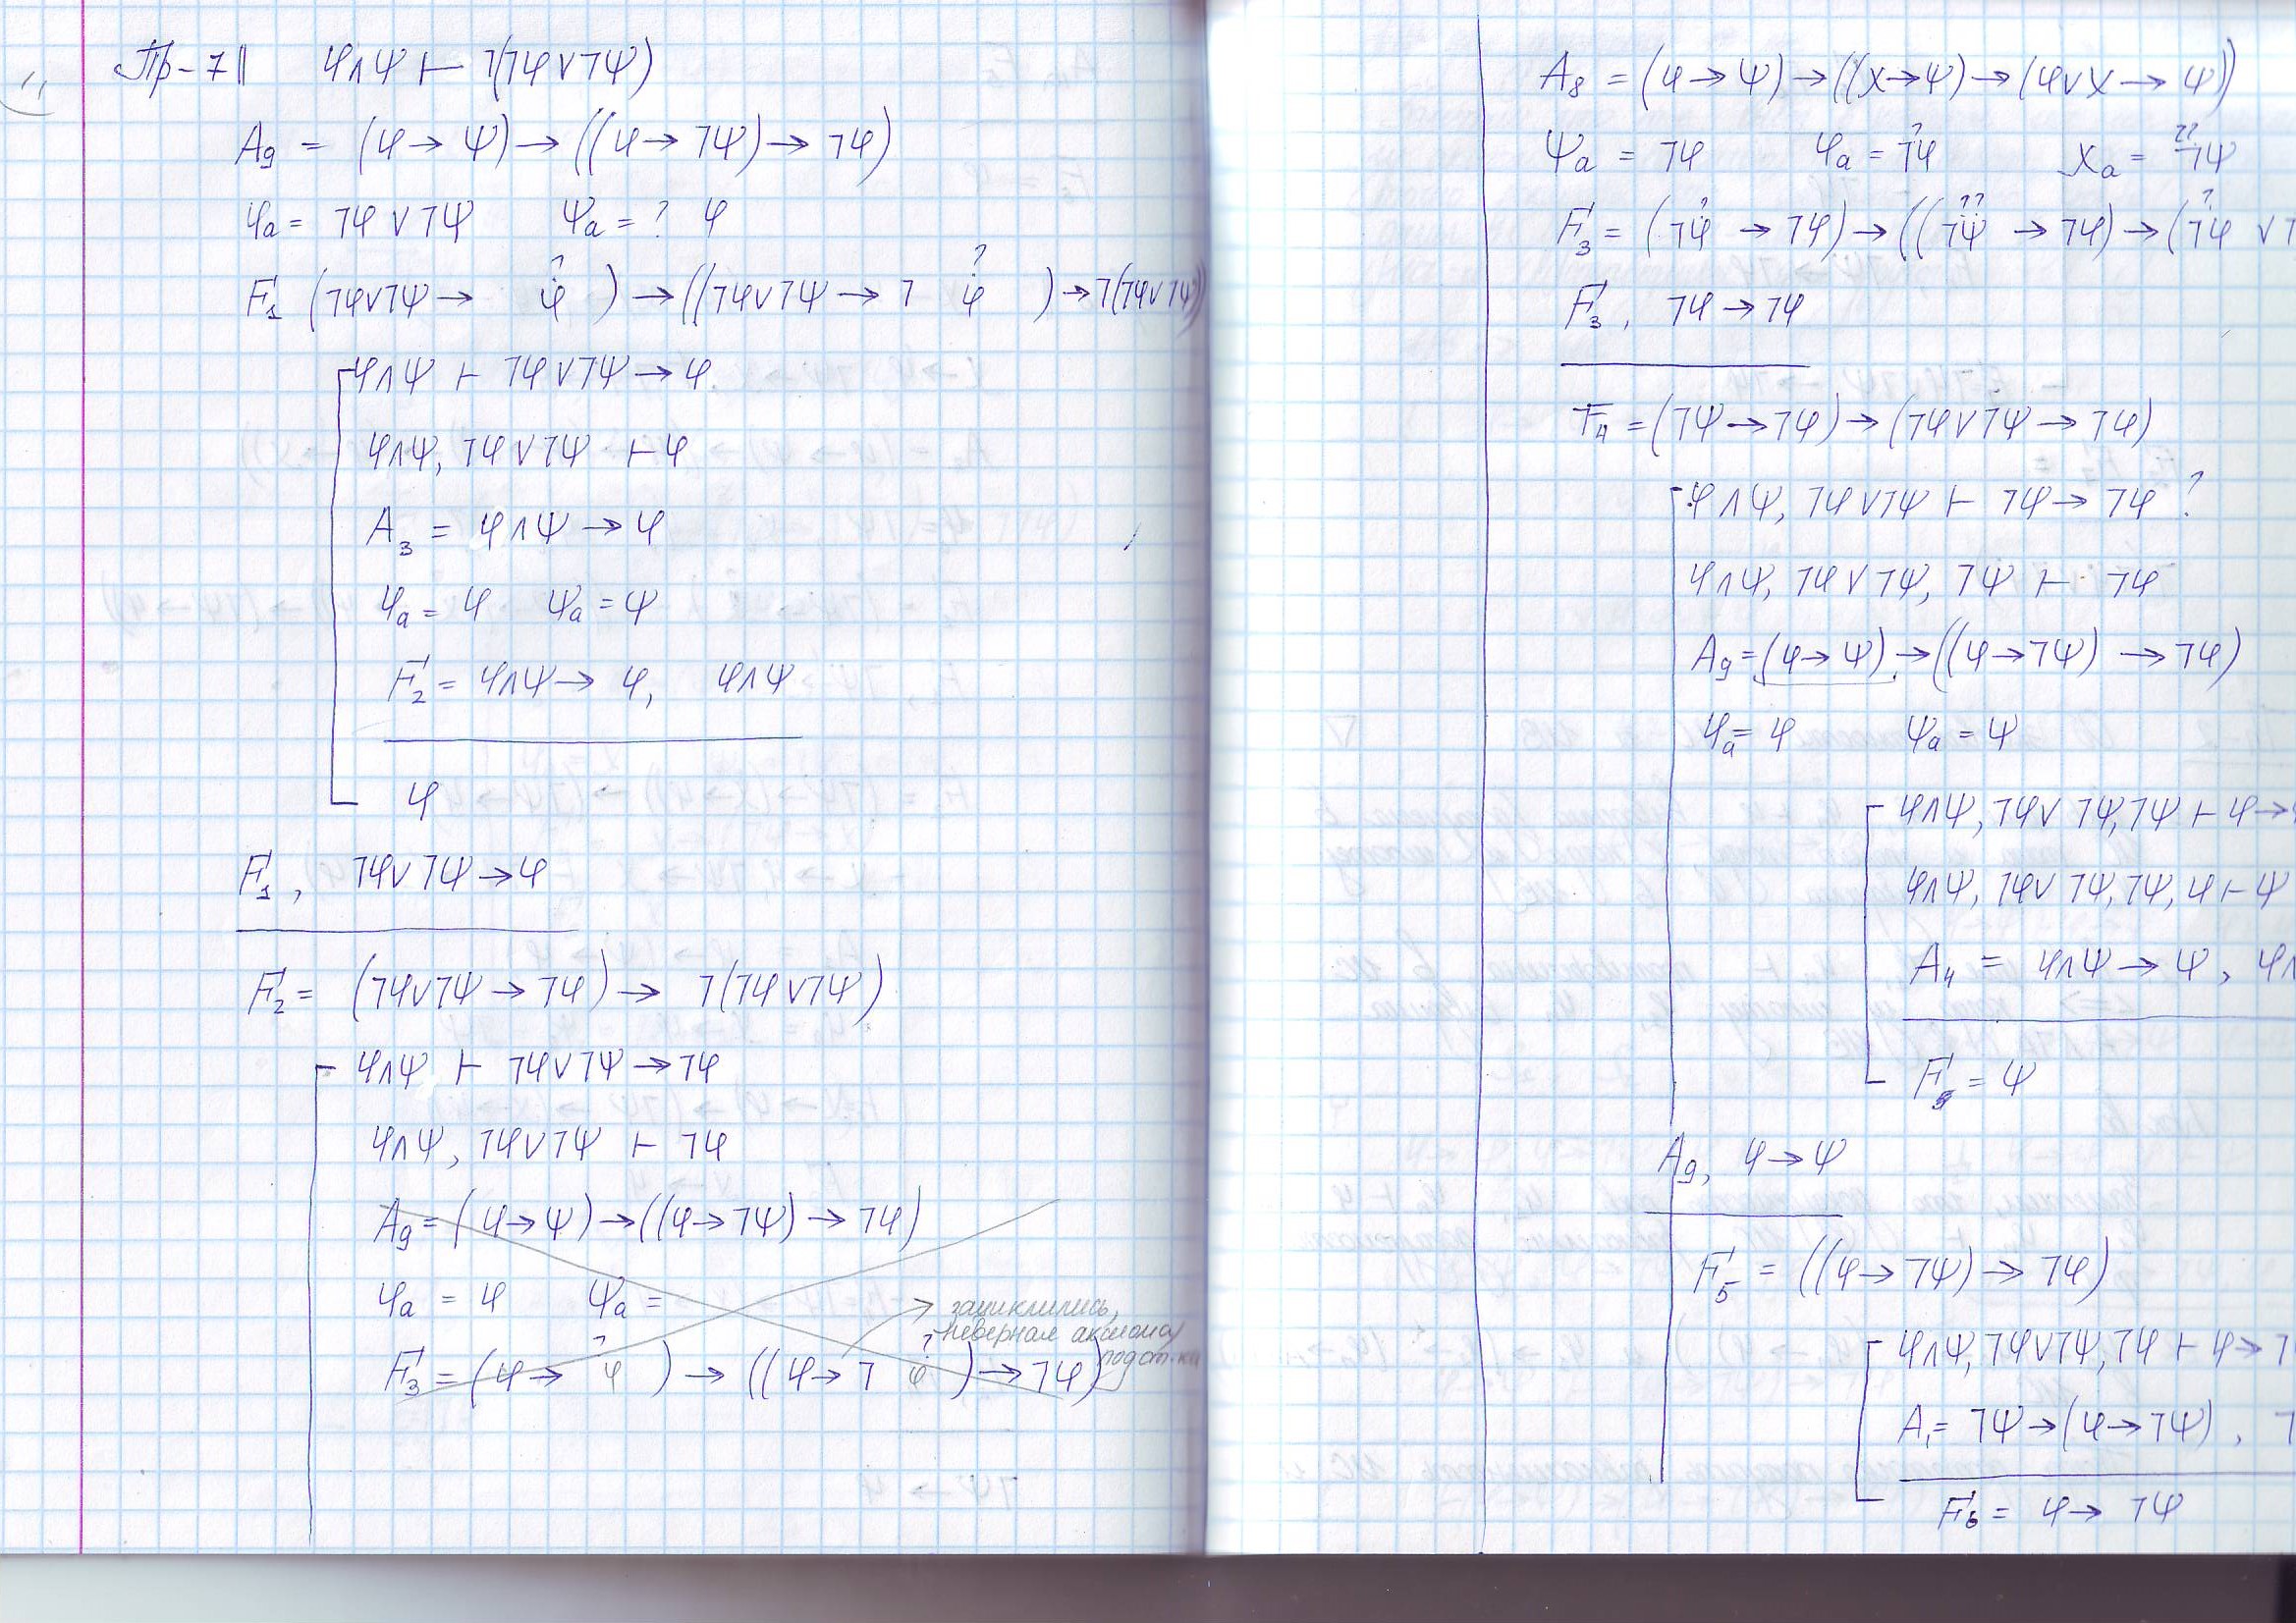 Пр-7|| φ∧ψ ⊢ ¬(¬φ∨¬ψ)
A₉ = (φ→ψ)→((φ→¬ψ)→¬φ)
φₐ = ¬φ∨¬ψ ψₐ = ? φ
F₁ (¬φ∨¬ψ→ φ̇̉ )→((¬φ∨¬ψ→¬ φ )→¬(¬φ∨¬ψ))
φ∧ψ ⊢ ¬φ∨¬ψ→φ
φ∧ψ, ¬φ∨¬ψ ⊢ φ
A₃ = φ∧ψ→φ
φₐ = φ ψₐ = ψ
F₂ = φ∧ψ→φ, φ∧ψ
φ
F₁, ¬φ∨¬ψ→φ
F₂ = (¬φ∨¬ψ→¬φ)→ ¬(¬φ∨¬ψ)
φ∧ψ ⊢ ¬φ∨¬ψ→¬φ
φ∧ψ, ¬φ∨¬ψ ⊢ ¬φ
A₉ = (φ→ψ)→((φ→¬ψ)→¬φ)
φₐ = φ ψₐ =
зациклились,
неверная аксиома
F₃ = (φ→ φ )→((φ→¬ φ )→¬φ)
A₈ = (φ→ψ)→((χ→ψ)→(φ∨χ→ψ))
ψₐ = ¬φ φₐ = ¬φ χₐ = ¬ψ
F₃ = (¬φ→¬φ)→((¬ψ→¬φ)→(¬φ∨¬
F₃, ¬φ→¬φ
F₄ = (¬ψ→¬φ)→(¬φ∨¬ψ→¬φ)
φ∧ψ, ¬φ∨¬ψ ⊢ ¬φ→¬φ ?
φ∧ψ, ¬φ∨¬ψ, ¬ψ ⊢ ¬φ
A₉ = (φ→ψ)→((φ→¬ψ)→¬φ)
φₐ = φ ψₐ = ψ
φ∧ψ, ¬φ∨¬ψ, ¬ψ ⊢ φ→
φ∧ψ, ¬φ∨¬ψ, ¬ψ, φ ⊢ ψ
A₄ = φ∧ψ→ψ, φ∧
F₅ = ψ
A₉, φ→ψ
F₅ = ((φ→¬ψ)→¬φ)
φ∧ψ, ¬φ∨¬ψ, ¬ψ ⊢ φ→¬
A₁ = ¬ψ→(φ→¬ψ), ¬
F₆ = φ→¬ψ